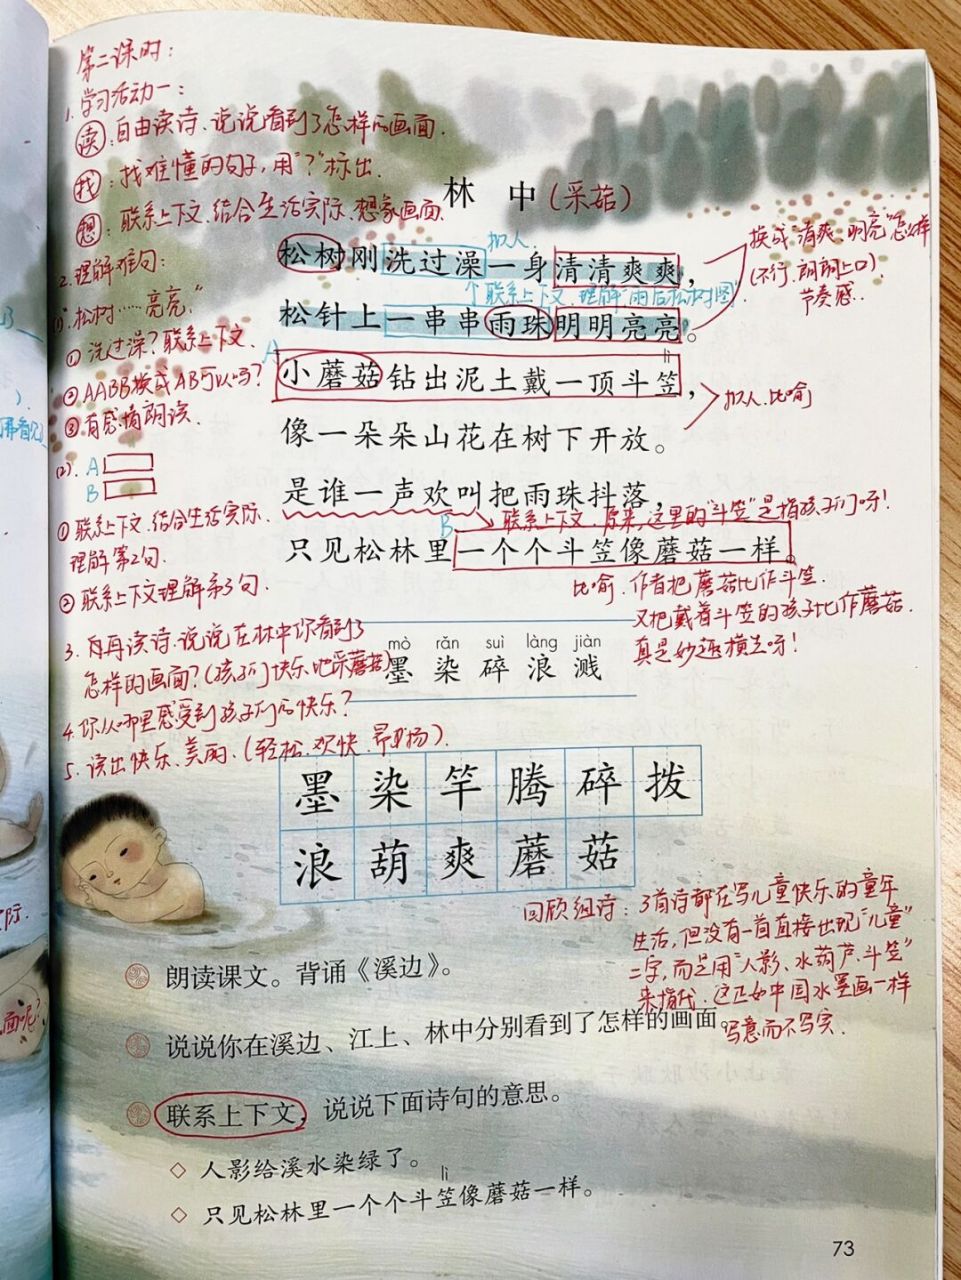 第二课时：
1.学习活动一：
读：自由读诗.说说看到了怎样的画面.
找：找难懂的句子,用"？"标出.
想：联系上下文.结合生活实际.想象画面.
2.理解难句：
(1)."松树……亮亮."
①洗过澡？联系上下文.
②AABB换成AB可以吗？
③有感情朗读.
(2). A
B
①联系上下文.结合生活实际.
理解第2句.
②联系上下文理解第3句.
3.再读诗.说说在林中你看到了
怎样的画面？(孩子们快乐地采蘑菇)
4.你从哪里感受到孩子们的快乐？
5.读出快乐、美丽.(轻松.欢快.昂扬).
林 中(采菇)
拟人.
松树刚洗过澡一身清清爽爽，
联系上下文.理解"雨后松树图".
松针上一串串雨珠明明亮亮。
换成"清爽.明亮"怎么样
(不行.朗朗上口).
节奏感.
A
lì
小蘑菇钻出泥土戴一顶斗笠，
拟人.比喻
像一朵朵山花在树下开放。
是谁一声欢叫把雨珠抖落，
B
联系上下文.原来,这里的"斗笠"是指孩子们呀！
只见松林里一个个斗笠像蘑菇一样。
比喻.作者把蘑菇比作斗笠.
又把戴着斗笠的孩子比作蘑菇.
真是妙趣横生呀！
mò rǎn suì làng jiàn
墨 染 碎 浪 溅
墨 染 竿 腾 碎 拨
浪 葫 爽 蘑 菇
回顾组诗：3首诗都在写儿童快乐的童年
生活,但没有一首直接出现"儿童"
二字,而是用"人影、水葫芦.斗笠"
来指代.这正如中国水墨画一样
写意而不写实.
朗读课文。背诵《溪边》。
说说你在溪边、江上、林中分别看到了怎样的画面。
联系上下文，说说下面诗句的意思。
◇ 人影给溪水染绿了。
lì
◇ 只见松林里一个个斗笠像蘑菇一样。
73